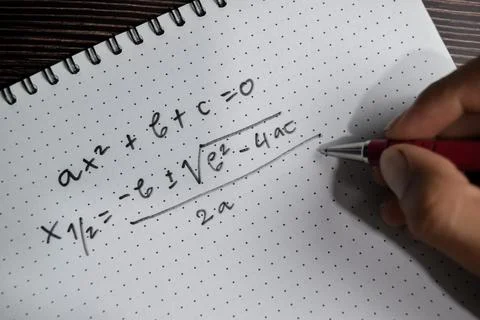 ax² + b + c = 0
x 1/2 = -b ± √b² - 4·ac / 2a